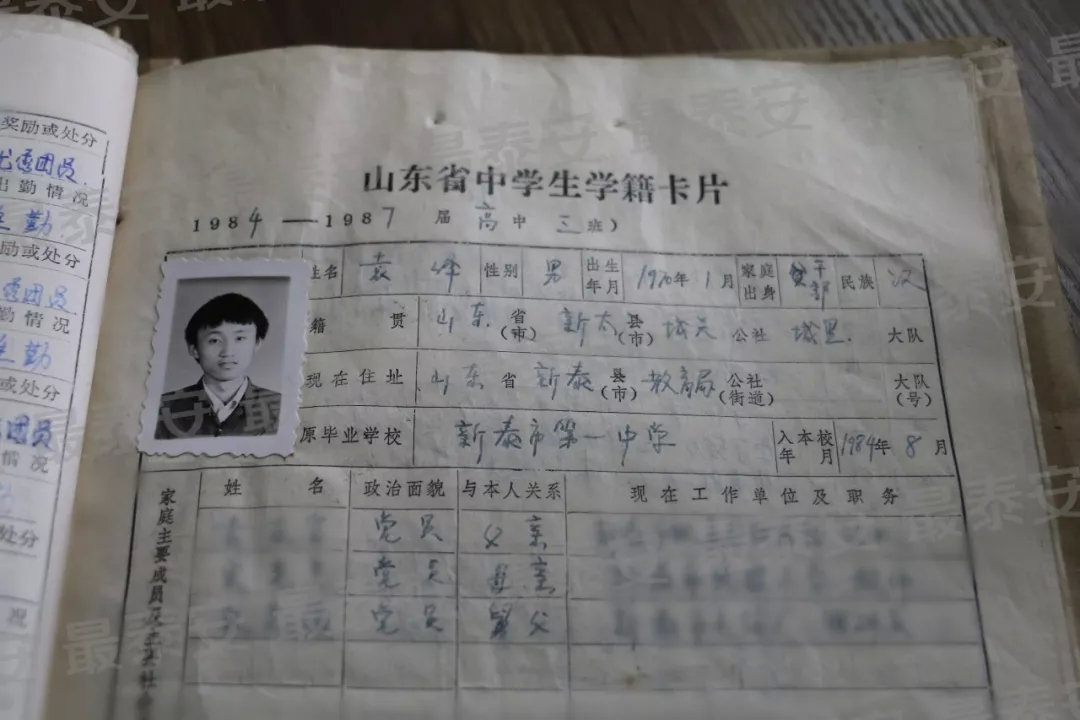 奖励或处分
优秀团员
出勤情况
全勤
励或处分
秀团员
勤情况
全勤
或处分
团员
情况
处分
况
山东省中学生学籍卡片
1984——1987届高中三班)
姓名 袁峰 性别 男 出生年月 1970年1月 家庭出身 干部 民族 汉
籍贯 山东省(市) 新太县(市) 公社 大队
现在住址 山东省 新泰县(市) 教育局公社(街道) 大队(号)
原毕业学校 新泰市第一中学 入本校年月 1984年8月
家庭主要成员及主要社会
姓名 政治面貌 与本人关系 现在工作单位及职务
党员 父亲
党员 母亲
党员 舅父
最泰安